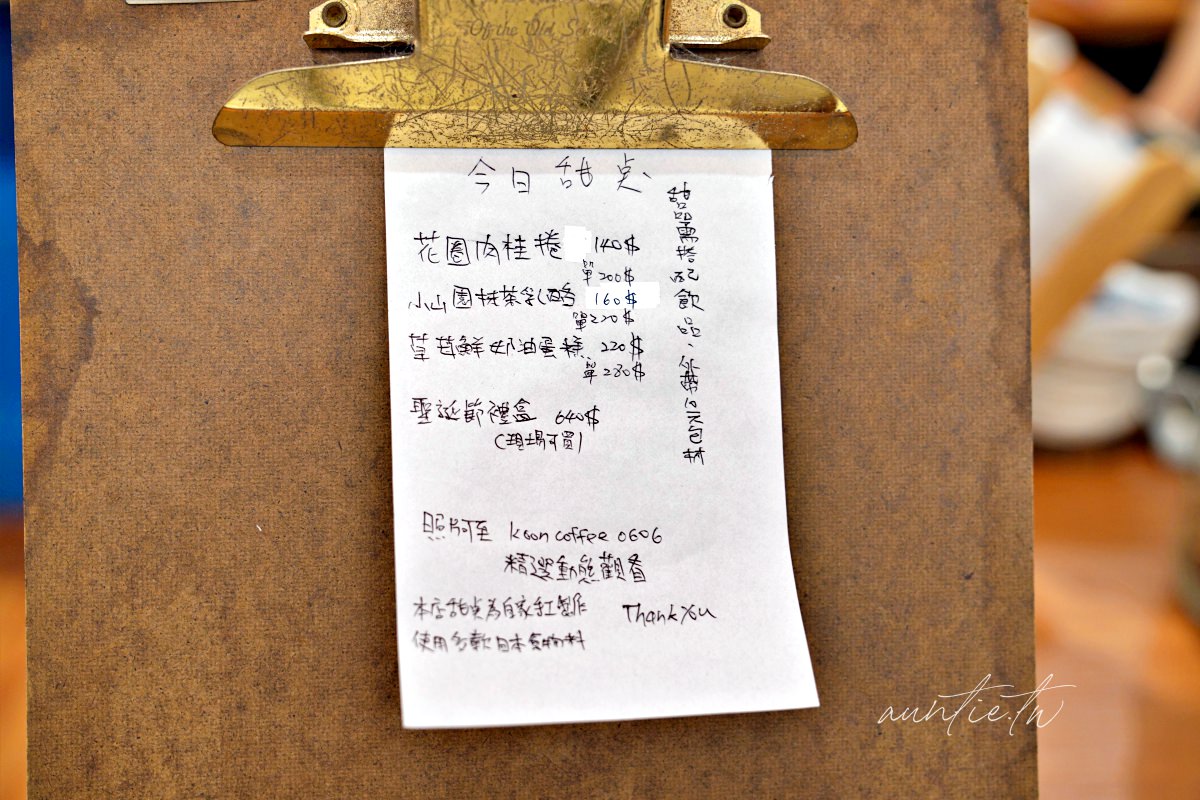 Off the Old
今日甜点、
花圈肉桂捲 140$
單 200$
小山園抹茶乳酪 160$
單 220$
草苺鮮奶油蛋糕 220$
單 280$
聖誕節禮盒 640$
(現場可買)
甜品需搭配飲品、外帶10元包材
照片可至 koon coffee 0606
精選動態觀看
本店甜点為自家手工製作 Thank you
使用多款日本食物料
auntie.tw